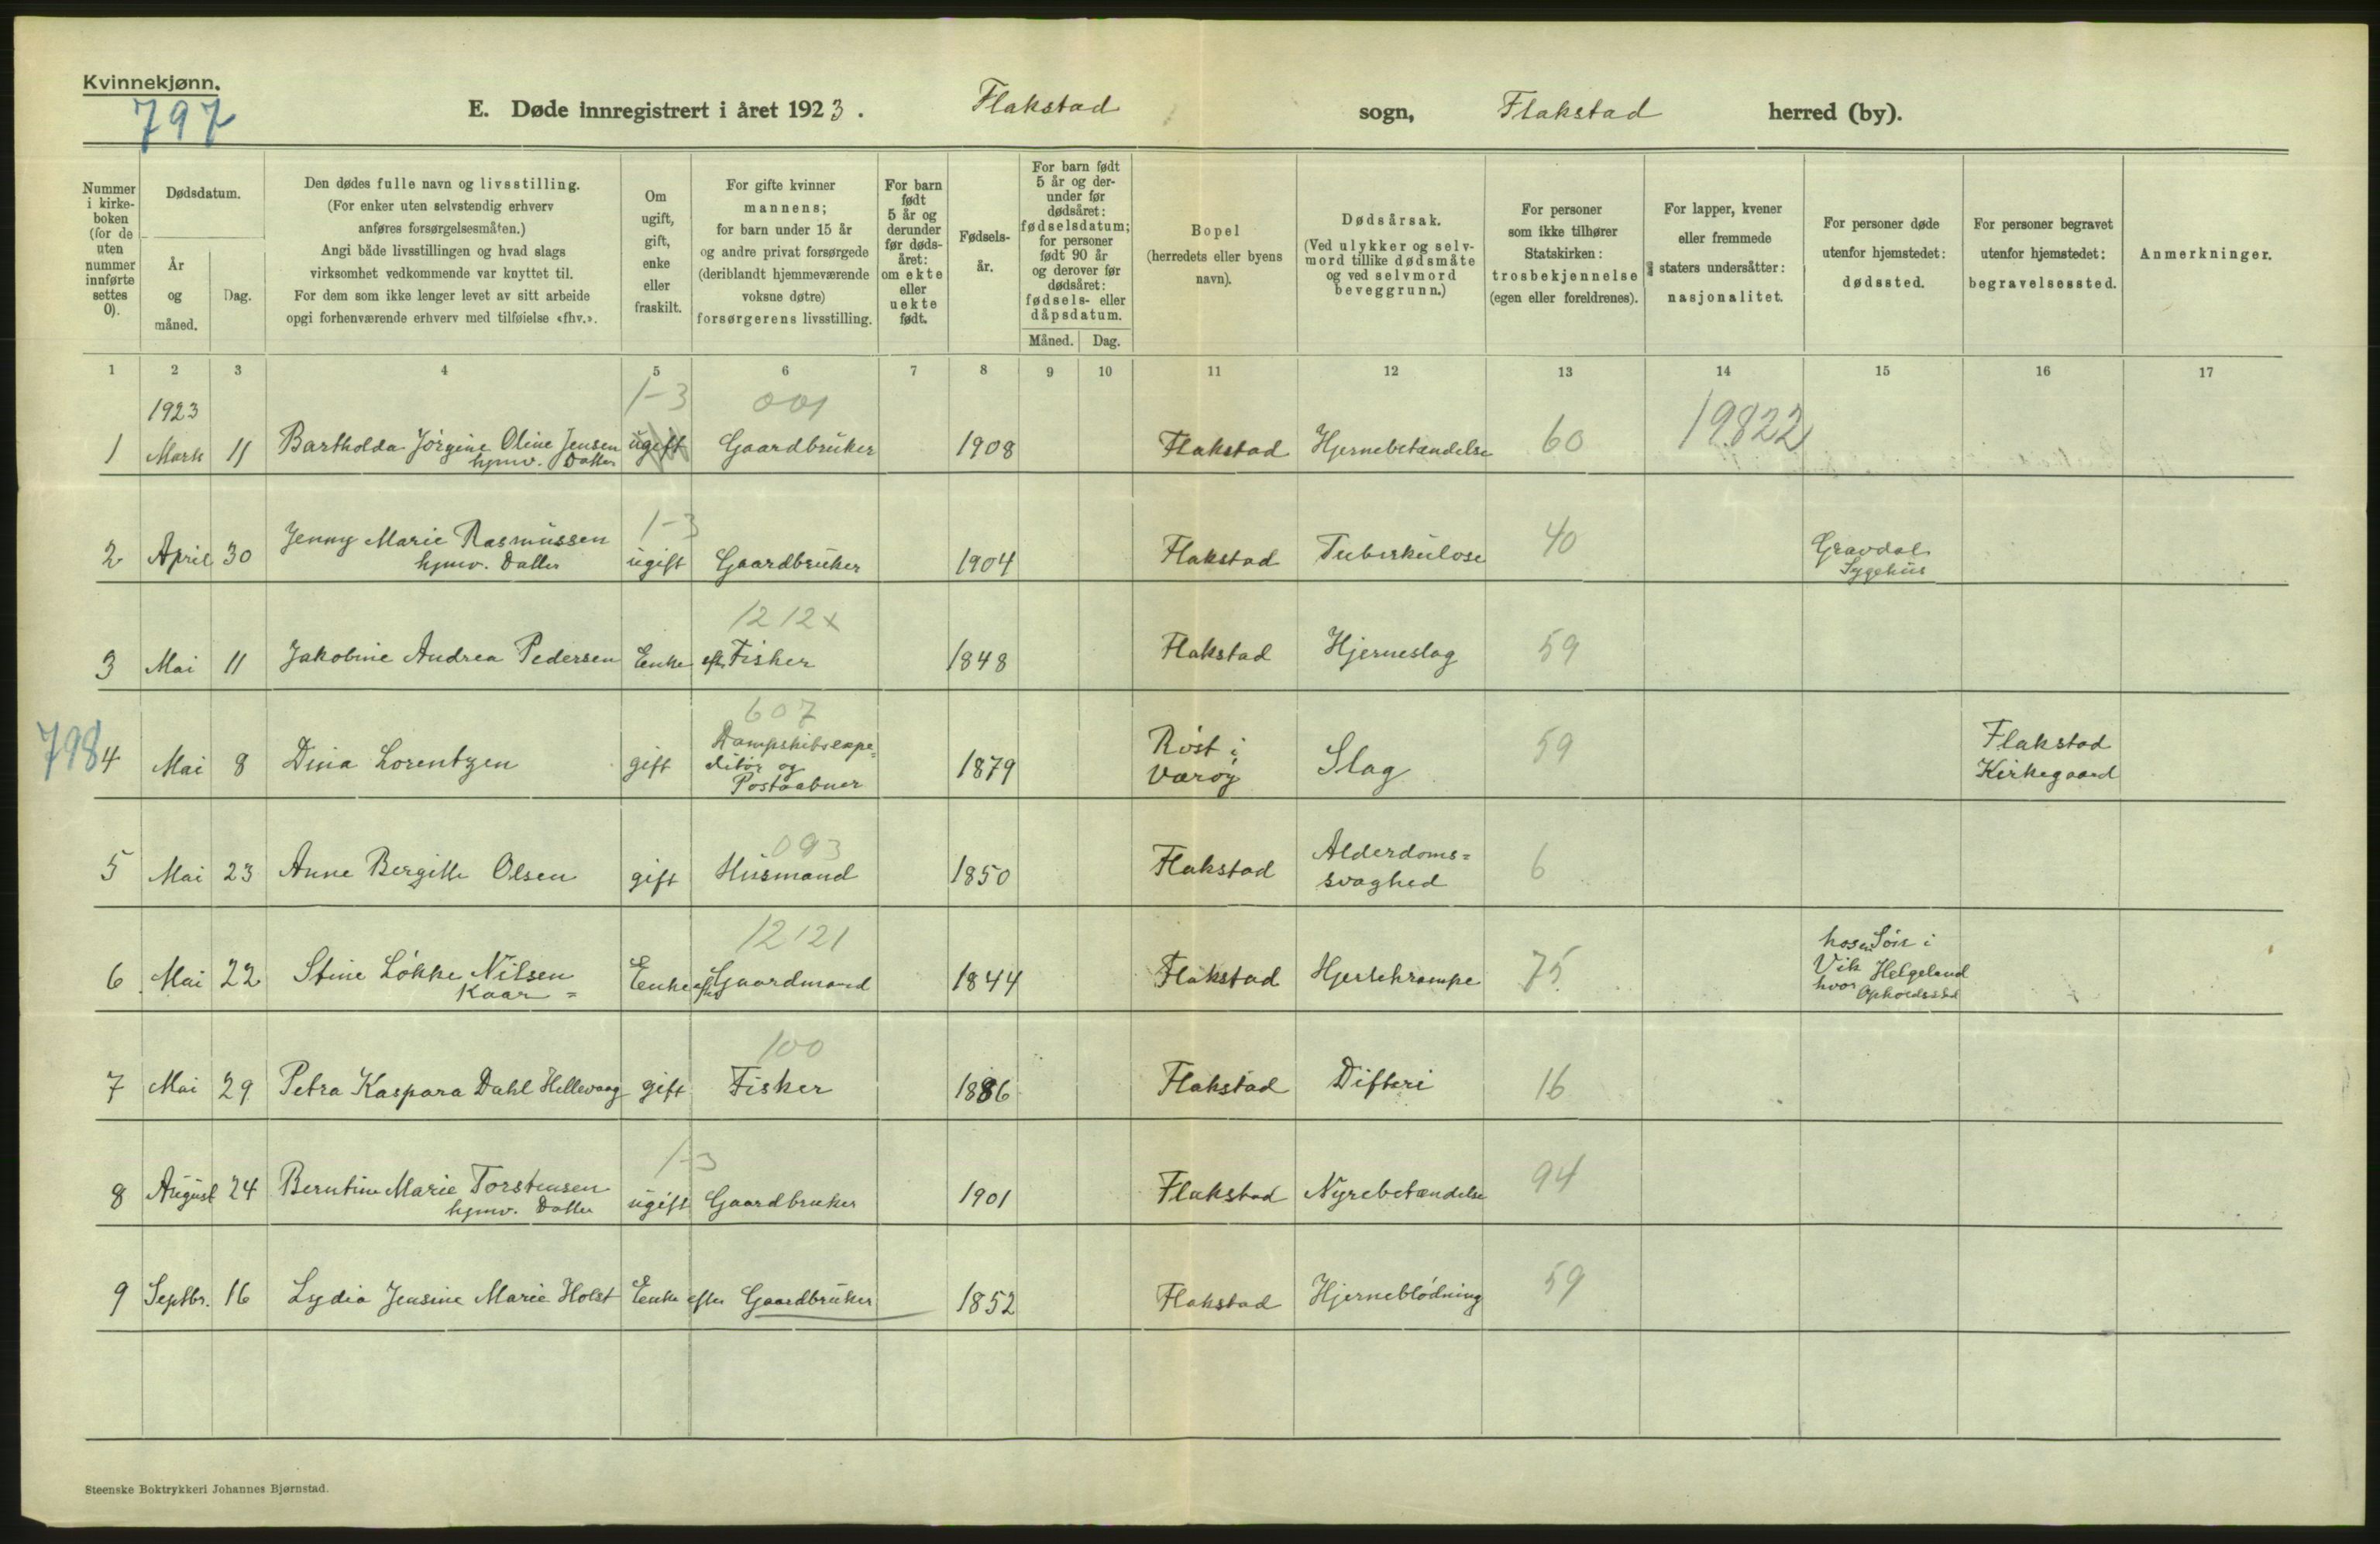 Kvinnekjønn.
797
E. Døde innregistrert i året 1923. Flakstad sogn, Flakstad herred (by).
Nummer i kirke-boken (for de uten nummer innførte settes 0).
Dødsdatum.
År og måned.
Dag.
Den dødes fulle navn og livsstilling.
(For enker uten selvstendig erhverv
anføres forsørgelsesmåten.)
Angi både livsstillingen og hvad slags
virksomhet vedkommende var knyttet til.
For dem som ikke lenger levet av sitt arbeide
opgi forhenværende erhverv med tilføielse «fhv.».
Om
ugift,
gift,
enke
eller
fraskilt.
For gifte kvinner
mannens;
for barn under 15 år
og andre privat forsørgede
(deriblandt hjemmeværende
voksne døtre)
forsørgerens livsstilling.
For barn
født
5 år og
derunder
før døds-
året:
om ekte
eller
uekte
født.
Fødsels-
år.
For barn født
5 år og der-
under før
dødsåret:
fødselsdatum;
for personer
født 90 år
og derover før
dødsåret:
fødsels- eller
dåpsdatum.
Måned. Dag.
Bopel
(herredets eller byens
navn).
Dødsårsak.
(Ved ulykker og selv-
mord tillike dødsmåte
og ved selvmord
beveggrunn.)
For personer
som ikke tilhører
Statskirken:
trosbekjennelse
(egen eller foreldrenes).
For lapper, kvener
eller fremmede
staters undersåtter:
nasjonalitet.
For personer døde
utenfor hjemstedet:
dødssted.
For personer begravet
utenfor hjemstedet:
begravelsessted.
Anmerkninger.
1 2 3 4 5 6 7 8 9 10 11 12 13 14 15 16 17
1923 1-3 001
1 Marts 11 Bartholda Jørgine Oline Jensen ugift Gaardbruker 1908 Flakstad Hjernebetændelse 60 19822
hjmv. Datter
1-3
2 April 30 Jenny Marie Rasmussen ugift Gaardbruker 1904 Flakstad Tuberkulose 40 Gravdal
hjmv. Datter Sygehus
1212x
3 Mai 11 Jakobine Andrea Pedersen Enke eft. Fisker 1848 Flakstad Hjerneslag 59
607
798 4 Mai 8 Dina Lorentzen gift Dampskibsexpe=
ditør og
Postaabner 1879 Røst i
Værøy Slag 59 Flakstad
Kirkegaard
093
5 Mai 23 Anne Bergitte Olsen gift Husmand 1850 Flakstad Alderdoms=
svaghed 6
12121
6 Mai 22 Stine Løkke Nilsen Enke efter Gaardmand 1844 Flakstad Hjertekrampe 75 hos en Søn i
Kaar= Vik Helgeland
hvor Opholdssted
100
7 Mai 29 Petra Kaspara Dahl Hellevaag gift Fisker 1886 Flakstad Difteri 16
1-3
8 August 24 Berntine Marie Torstensen ugift Gaardbruker 1901 Flakstad Nyrebetændelse 94
hjmv. Datter
9 Septbr. 16 Lydia Jensine Marie Holst Enke efter Gaardbruker 1852 Flakstad Hjerneblødning 59
Steenske Boktrykkeri Johannes Bjørnstad.